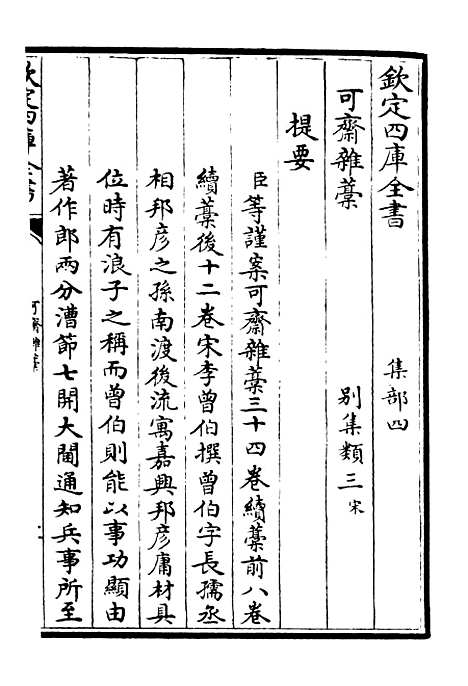 欽定四庫全書　集部四
可齋雜藁　别集類三宋
提要
臣等謹案可齋雜藁三十四卷續藁前八卷
續藁後十二卷宋李曾伯撰曾伯字長孺丞
相邦彦之孫南渡後流寓嘉興邦彦庸材具
位時有浪子之稱而曾伯則能以事功顯由
著作郎兩分漕節七開大閫通知兵事所至
欽定四庫全書
可齋雜藁